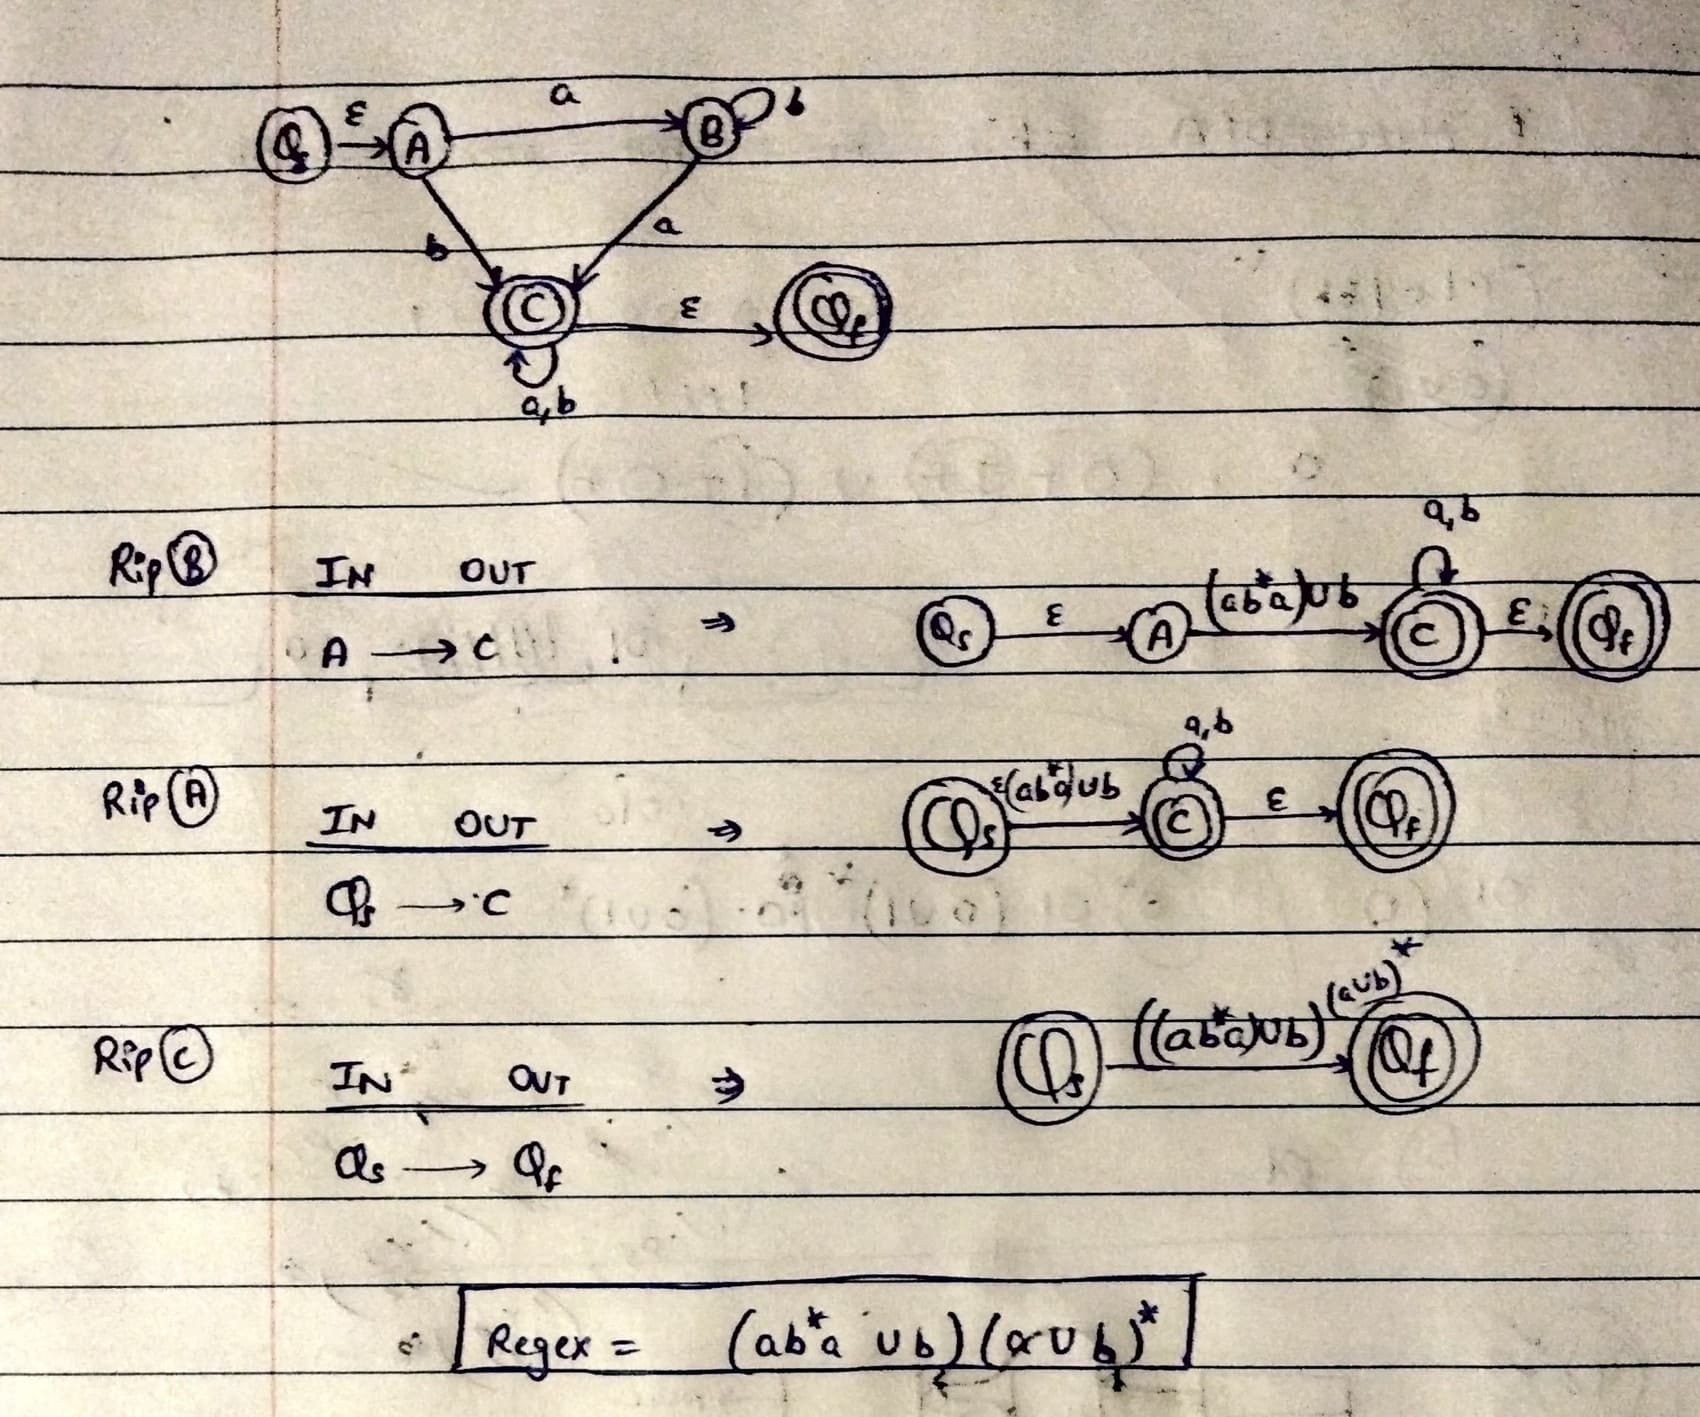 Qs ε A a B b
b a
C ε Qf
a,b
Rip B IN OUT a,b
A → C ⇒ Qs ε A (ab*a)∪b C ε Qf
Rip A IN OUT ⇒ a,b
Qs → C Qs ε(ab*a)∪b C ε Qf
Rip C IN OUT ⇒ Qs ((ab*a)∪b)(a∪b)* Qf
Qs → Qf
∴ Regex = (ab*a ∪ b)(a ∪ b)*